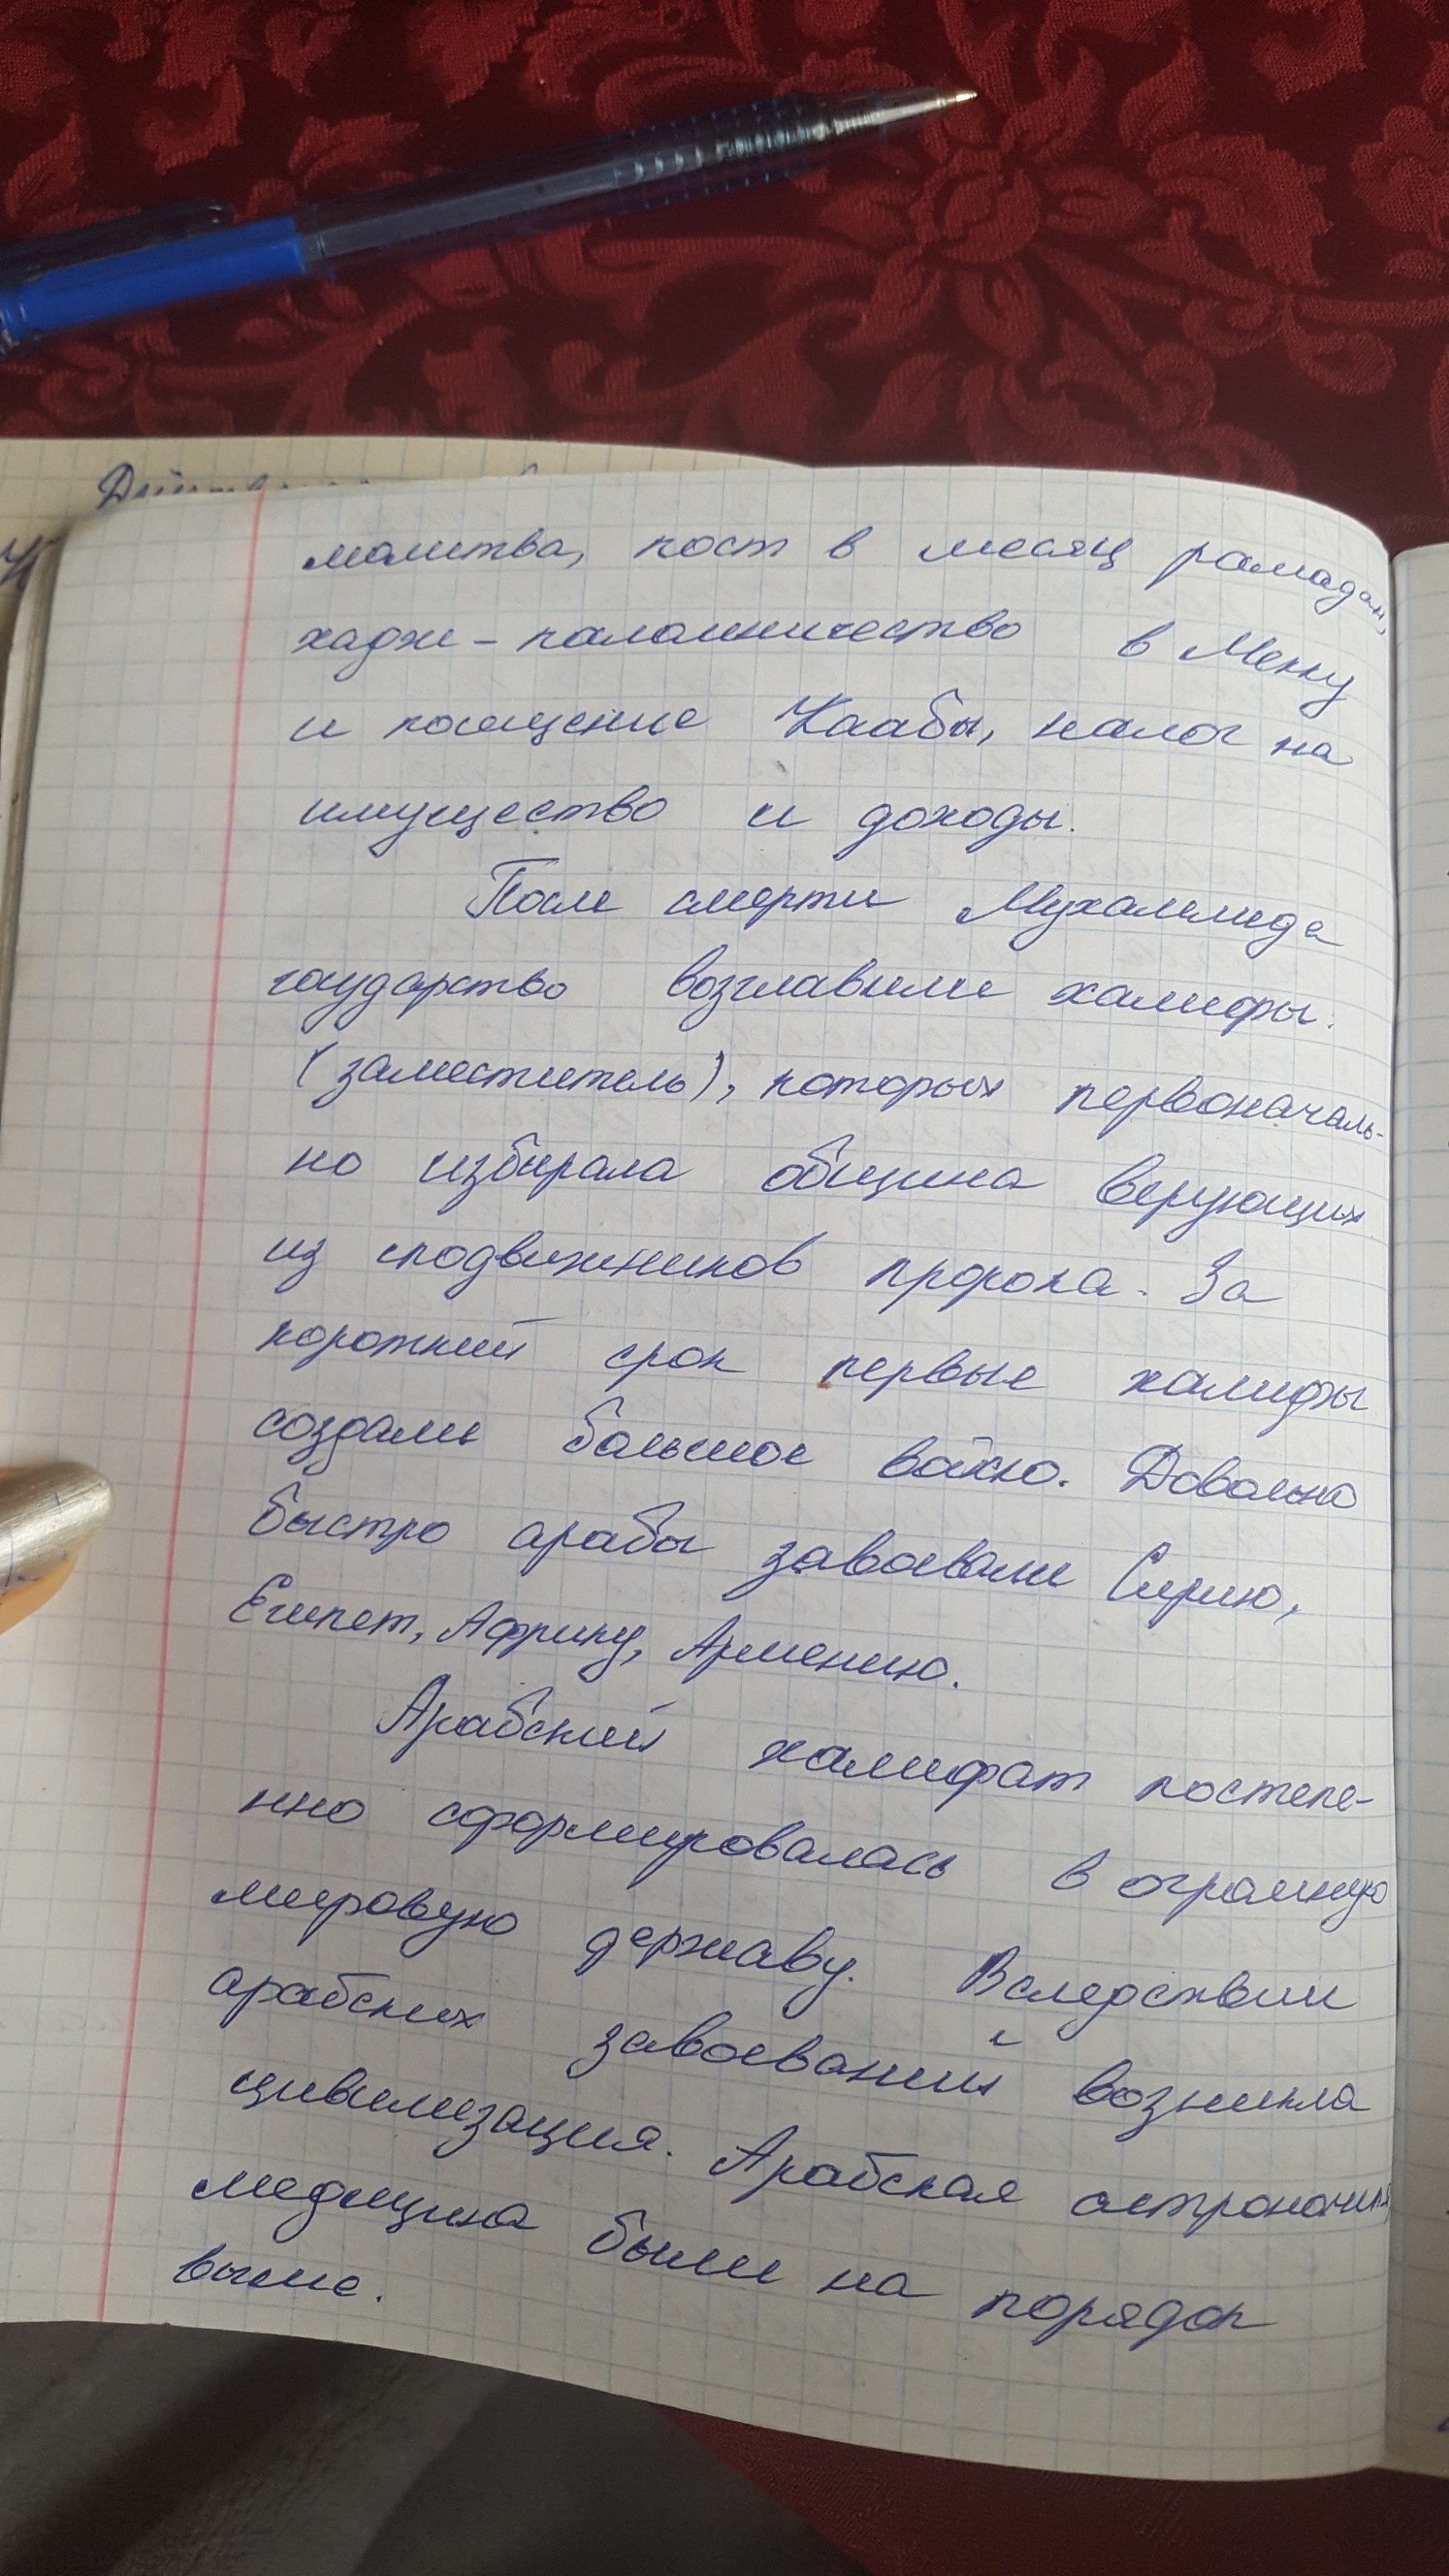 молитва, пост в месяц рамадан,
хадж - паломничество в Мекку
и посещение Каабы, налог на
имущество и доходы.
После смерти Мухаммеда
государство возглавили халифы.
(заместитель), которых первоначаль-
но избирала община верующих
из сподвижников пророка. За
короткий срок первые халифы
создали большое войско. Довольно
быстро арабы завоевали Сирию,
Египет, Африку, Армению.
Арабский халифат постепе-
нно сформировалась в огромную
мировую державу. Вследствии
арабских завоеваний возникла
цивилизация. Арабская астрономия,
медицина были на порядок
выше.